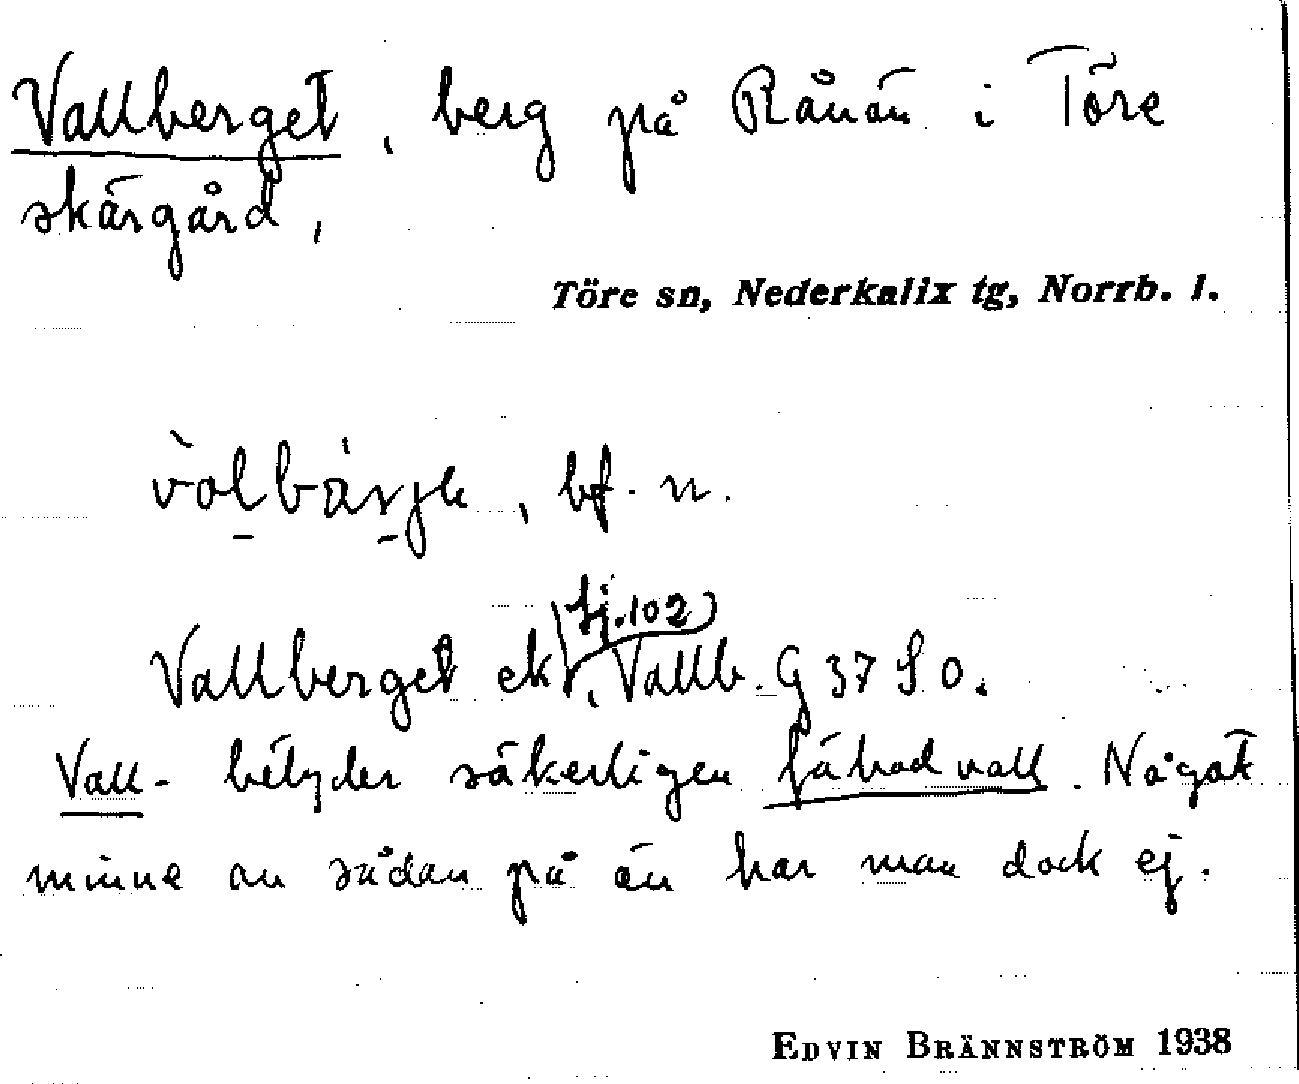 Vallberget, berg på Rånön i Töre
skärgård,
Töre sn, Nederkalix tg, Norrb. l.
bf. n.
sj. 102
Vallberget ek, Vallb. G 37 SO.
Vall- betyder säkerligen fäbodvall. Något
minne av sådan på ön har man dock ej.
EDVIN BRÄNNSTRÖM 1938